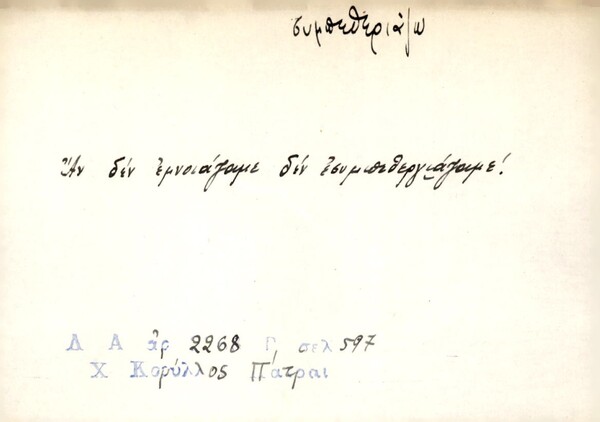 συμπεθεριάζω
Ἂν δέν ἐμνοιάζαμε δέν ἐσυμπεθεργιάζαμε!
Λ Α ἀρ 2268 Γ σελ 597
Χ Κορύλλος Πάτραι